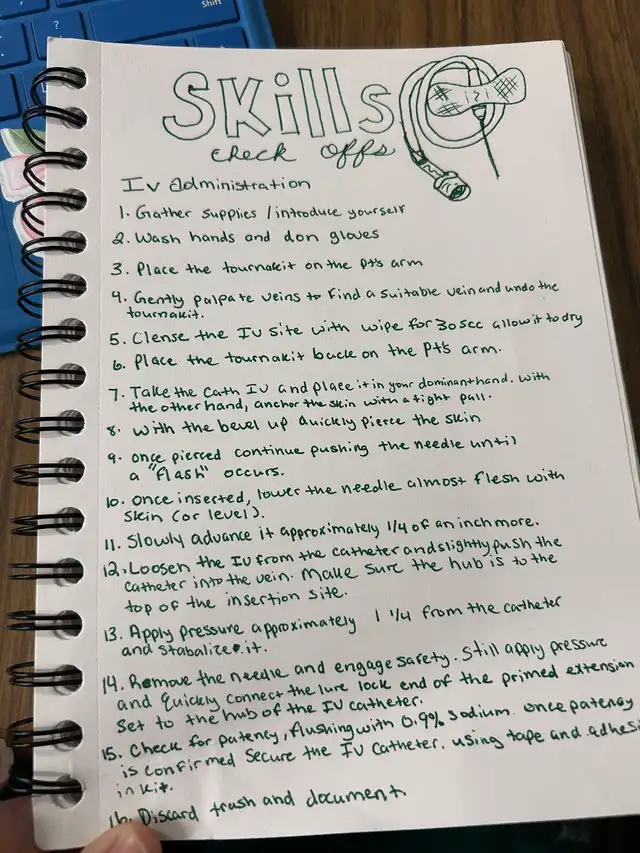 Shift
SKills
check offs
IV administration
1. Gather supplies / introduce yourself
2. Wash hands and don gloves
3. Place the tournakit on the pt's arm
4. Gently palpate veins to find a suitable vein and undo the
tournakit.
5. Clense the IV site with wipe for 30 sec allow it to dry
6. Place the tournakit back on the pt's arm.
7. Take the cath IV and place it in your dominant hand. With
the other hand, anchor the skin with a tight pull.
8. With the bevel up quickly pierce the skin
9. Once pierced continue pushing the needle until
a "flash" occurs.
10. Once inserted, lower the needle almost flesh with
skin (or level).
11. Slowly advance it approximately 1/4 of an inch more.
12. Loosen the IV from the catheter and slightly push the
catheter into the vein. Make sure the hub is to the
top of the insertion site.
13. Apply pressure approximately 1 1/4 from the catheter
and stabalize it.
14. Remove the needle and engage safety. Still apply pressure
and quickly connect the lure lock end of the primed extension
set to the hub of the IV catheter.
15. Check for patency, flushing with 0.9% sodium. Once patency
is confirmed secure the IV catheter. using tape and adhesi
in kit.
16. Discard trash and document.